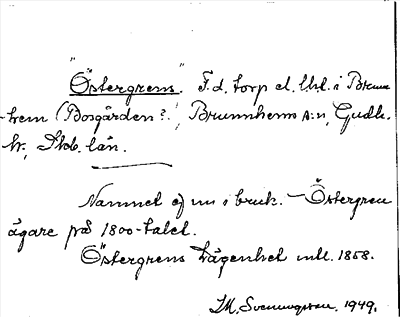 "Östergrens". F.d. torp el. lht. i Brunn-
hem (Bosgården?), Brunnhems sn, Gudh.
h., Skb. län.
Namnet ej nu i bruk. – Östergren
ägare på 1800-talet.
Östergrens lägenhet 1858.
Svenungsson. 1949.